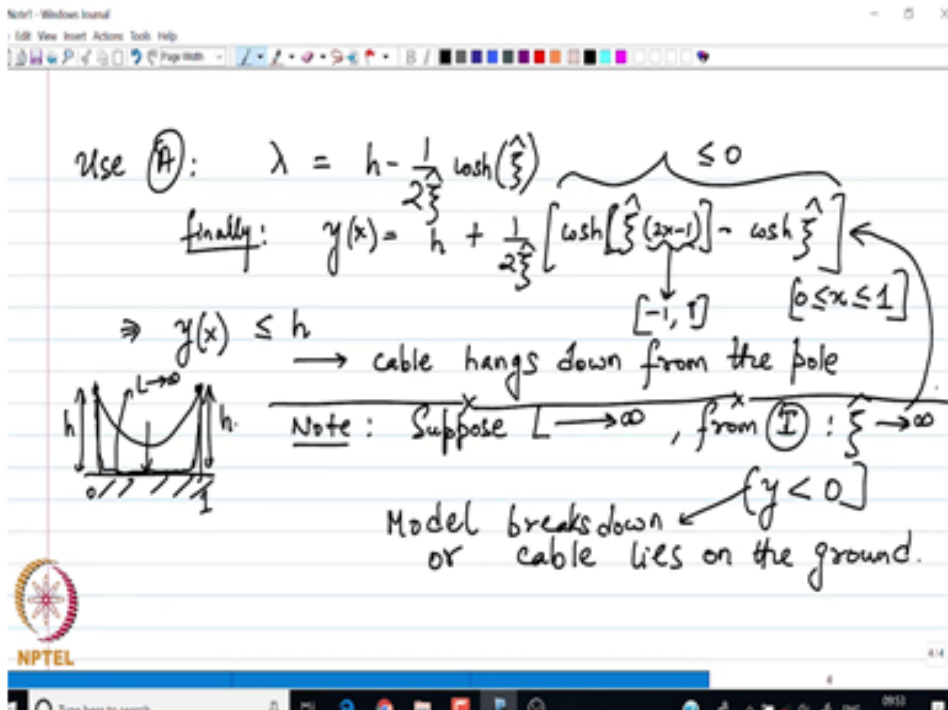 Note1 - Windows Journal
Edit View Insert Actions Tools Help
Page Width
B I
Use (A): λ = h - 1/(2ξ̂) cosh(ξ̂)
≤ 0
finally: y(x) = h + 1/(2ξ̂) [cosh[ξ̂(2x-1)] - cosh ξ̂]
[-1, 1]
[0≤x≤1]
⇒ y(x) ≤ h
→ cable hangs down from the pole
L→∞
h
h.
0
1
Note: Suppose L → ∞, from (I): ξ̂ → ∞
[y < 0]
Model breaks down
or cable lies on the ground.
NPTEL
4/4
4
Type here to search
09:53